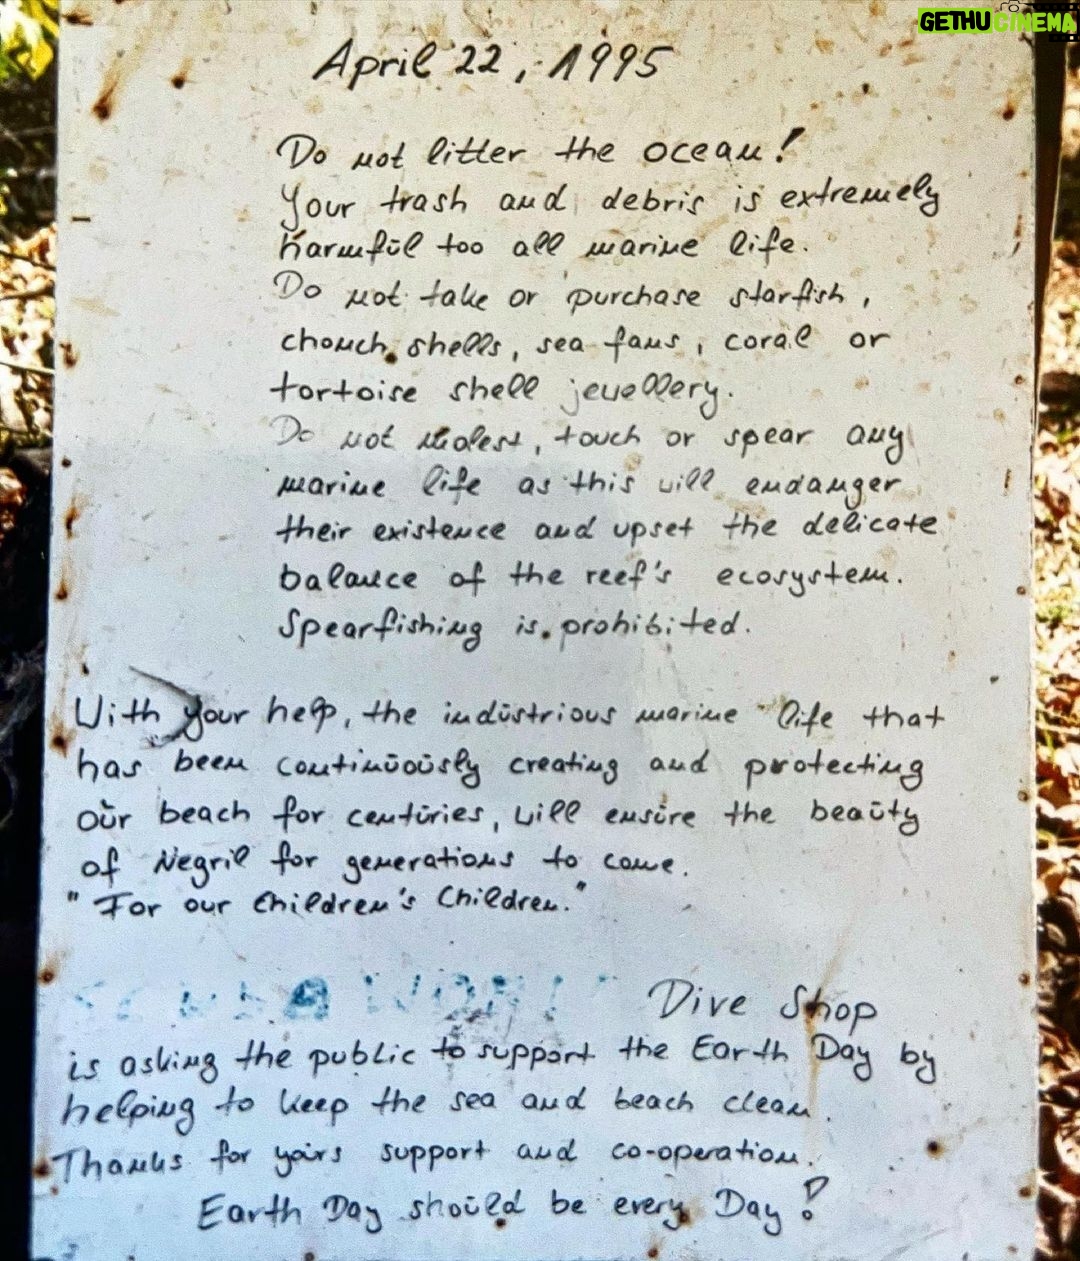 GETHUCINEMA
April 22, 1995
Do not litter the ocean!
Your trash and debris is extremely
harmfūl too all marine life.
Do not take or purchase starfish,
chonch shells, sea fans, coral or
tortoise shell jevellery.
Do not molest, touch or spear any
marine life as this will endanger
their existence and upset the delicate
balance of the reef's ecosystem.
Spearfishing is prohibited.
With your help, the indūstrious marine life that
has been continūoūsly creating and protecting
oūr beach for centūries, will ensūre the beaūty
of Negril for generations to come.
"For our Children's Children."
Dive Shop
is asking the public to support the Earth Day by
helping to keep the sea and beach clean.
Thanks for yoūrs support and co-operation.
Earth Day shoūld be every Day!